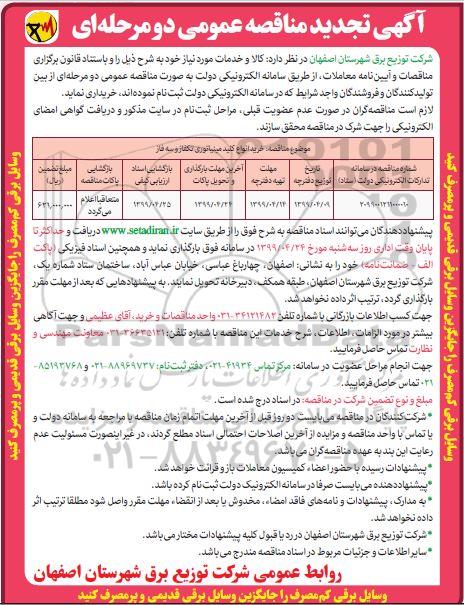 آگهی تجدید مناقصه عمومی دو مرحله‌ای
شرکت توزیع برق شهرستان اصفهان در نظر دارد: کالا و خدمات مورد نیاز خود به شرح ذیل را و باستناد قانون برگزاری
مناقصات و آیین‌نامه معاملات، از طریق سامانه الکترونیکی دولت به صورت مناقصه عمومی دو مرحله‌ای از بین
تولیدکنندگان و فروشندگان واجد شرایط که در سامانه الکترونیکی دولت ثبت‌نام نموده‌اند، خریداری نماید.
لازم است مناقصه‌گران در صورت عدم عضویت قبلی، مراحل ثبت‌نام در سایت مذکور و دریافت گواهی امضای
الکترونیکی را جهت شرکت در مناقصه محقق سازند.
موضوع مناقصه: خرید انواع کلید مینیاتوری تکفاز و سه فاز
شماره مناقصه در سامانه تدارکات الکترونیکی دولت (ستاد) تاریخ توزیع دفترچه مهلت تهیه دفترچه آخرین مهلت بارگذاری و تحویل پاکات بازگشایی اسناد ارزیابی کیفی بازگشایی پاکات مناقصه مبلغ تضمین (ریال)
۱۳۹۹/۰۴/۰۹ ۱۳۹۹/۰۴/۱۴ ۱۳۹۹/۰۴/۲۴ ۱۳۹۹/۰۴/۲۵ متعاقبا اعلام می‌گردد ۶۲۱,۰۰۰,۰۰۰
پیشنهاددهندگان می‌توانند اسناد مناقصه به شرح فوق را از طریق سایت www.setadiran.ir دریافت و حداکثر تا
پایان وقت اداری روز سه‌شنبه مورخ ۱۳۹۹/۰۴/۲۴ در سامانه فوق بارگذاری نماید و همچنین اسناد فیزیکی (پاکت
الف - ضمانت‌نامه) خود را به نشانی: اصفهان، چهارباغ عباسی، خیابان عباس آباد، ساختمان ستاد شماره یک،
شرکت توزیع برق شهرستان اصفهان، طبقه همکف، دبیرخانه تحویل نمایند. به پیشنهادهایی که بعد از مهلت مقرر
بارگذاری گردد، ترتیب اثر داده نخواهد شد.
جهت کسب اطلاعات بازرگانی با شماره تلفن ۳۶۱۲۱۴۸۲-۰۳۱ واحد مناقصات و خرید، آقای عظیمی و جهت آگاهی
بیشتر در مورد الزامات، اطلاعات، شرح خدمات این مناقصه با شماره تلفن: ۳۶۶۳۵۱۳۱-۰۳۱ معاونت مهندسی و
نظارت تماس حاصل فرمایید.
جهت انجام مراحل عضویت در سامانه: مرکز تماس ۴۱۹۳۴-۰۲۱، دفتر ثبت‌نام: ۸۸۹۶۹۷۳۷-۰۲۱ و ۸۵۱۹۳۷۶۸-
۰۲۱ تماس حاصل فرمایید.
مبلغ و نوع تضمین شرکت در مناقصه: در اسناد درج شده است.
*شرکت‌کنندگان در مناقصه می‌بایست دو روز قبل از آخرین مهلت اتمام زمان مناقصه با مراجعه به سامانه دولت و
یا تماس با واحد مناقصه و مزایده از آخرین اصلاحات احتمالی اسناد مطلع گردند، در غیر اینصورت مسئولیت عدم
رعایت این بند به عهده مناقصه‌گران می‌باشد.
*پیشنهادات رسیده با حضور اعضاء کمیسیون معاملات باز و قرائت خواهد شد.
*پیشنهاددهنده می‌بایست صرفا در سامانه الکترونیک دولت ثبت نام کرده باشد.
*به مدارک، پیشنهادات و نامه‌های فاقد امضاء، مخدوش یا بعد از انقضاء مهلت مقرر واصل شود مطلقا ترتیب اثر
داده نخواهد شد.
*شرکت توزیع برق شهرستان اصفهان در رد یا قبول کلیه پیشنهادات مختار می‌باشد.
*سایر اطلاعات و جزئیات مربوط در اسناد مناقصه مندرج می‌باشد.
روابط عمومی شرکت توزیع برق شهرستان اصفهان
وسایل برقی کم‌مصرف را جایگزین وسایل برقی قدیمی و پرمصرف کنید
وسایل برقی کم‌مصرف را جایگزین وسایل برقی قدیمی و پرمصرف کنید
وسایل برقی کم‌مصرف را جایگزین وسایل برقی قدیمی و پرمصرف کنید